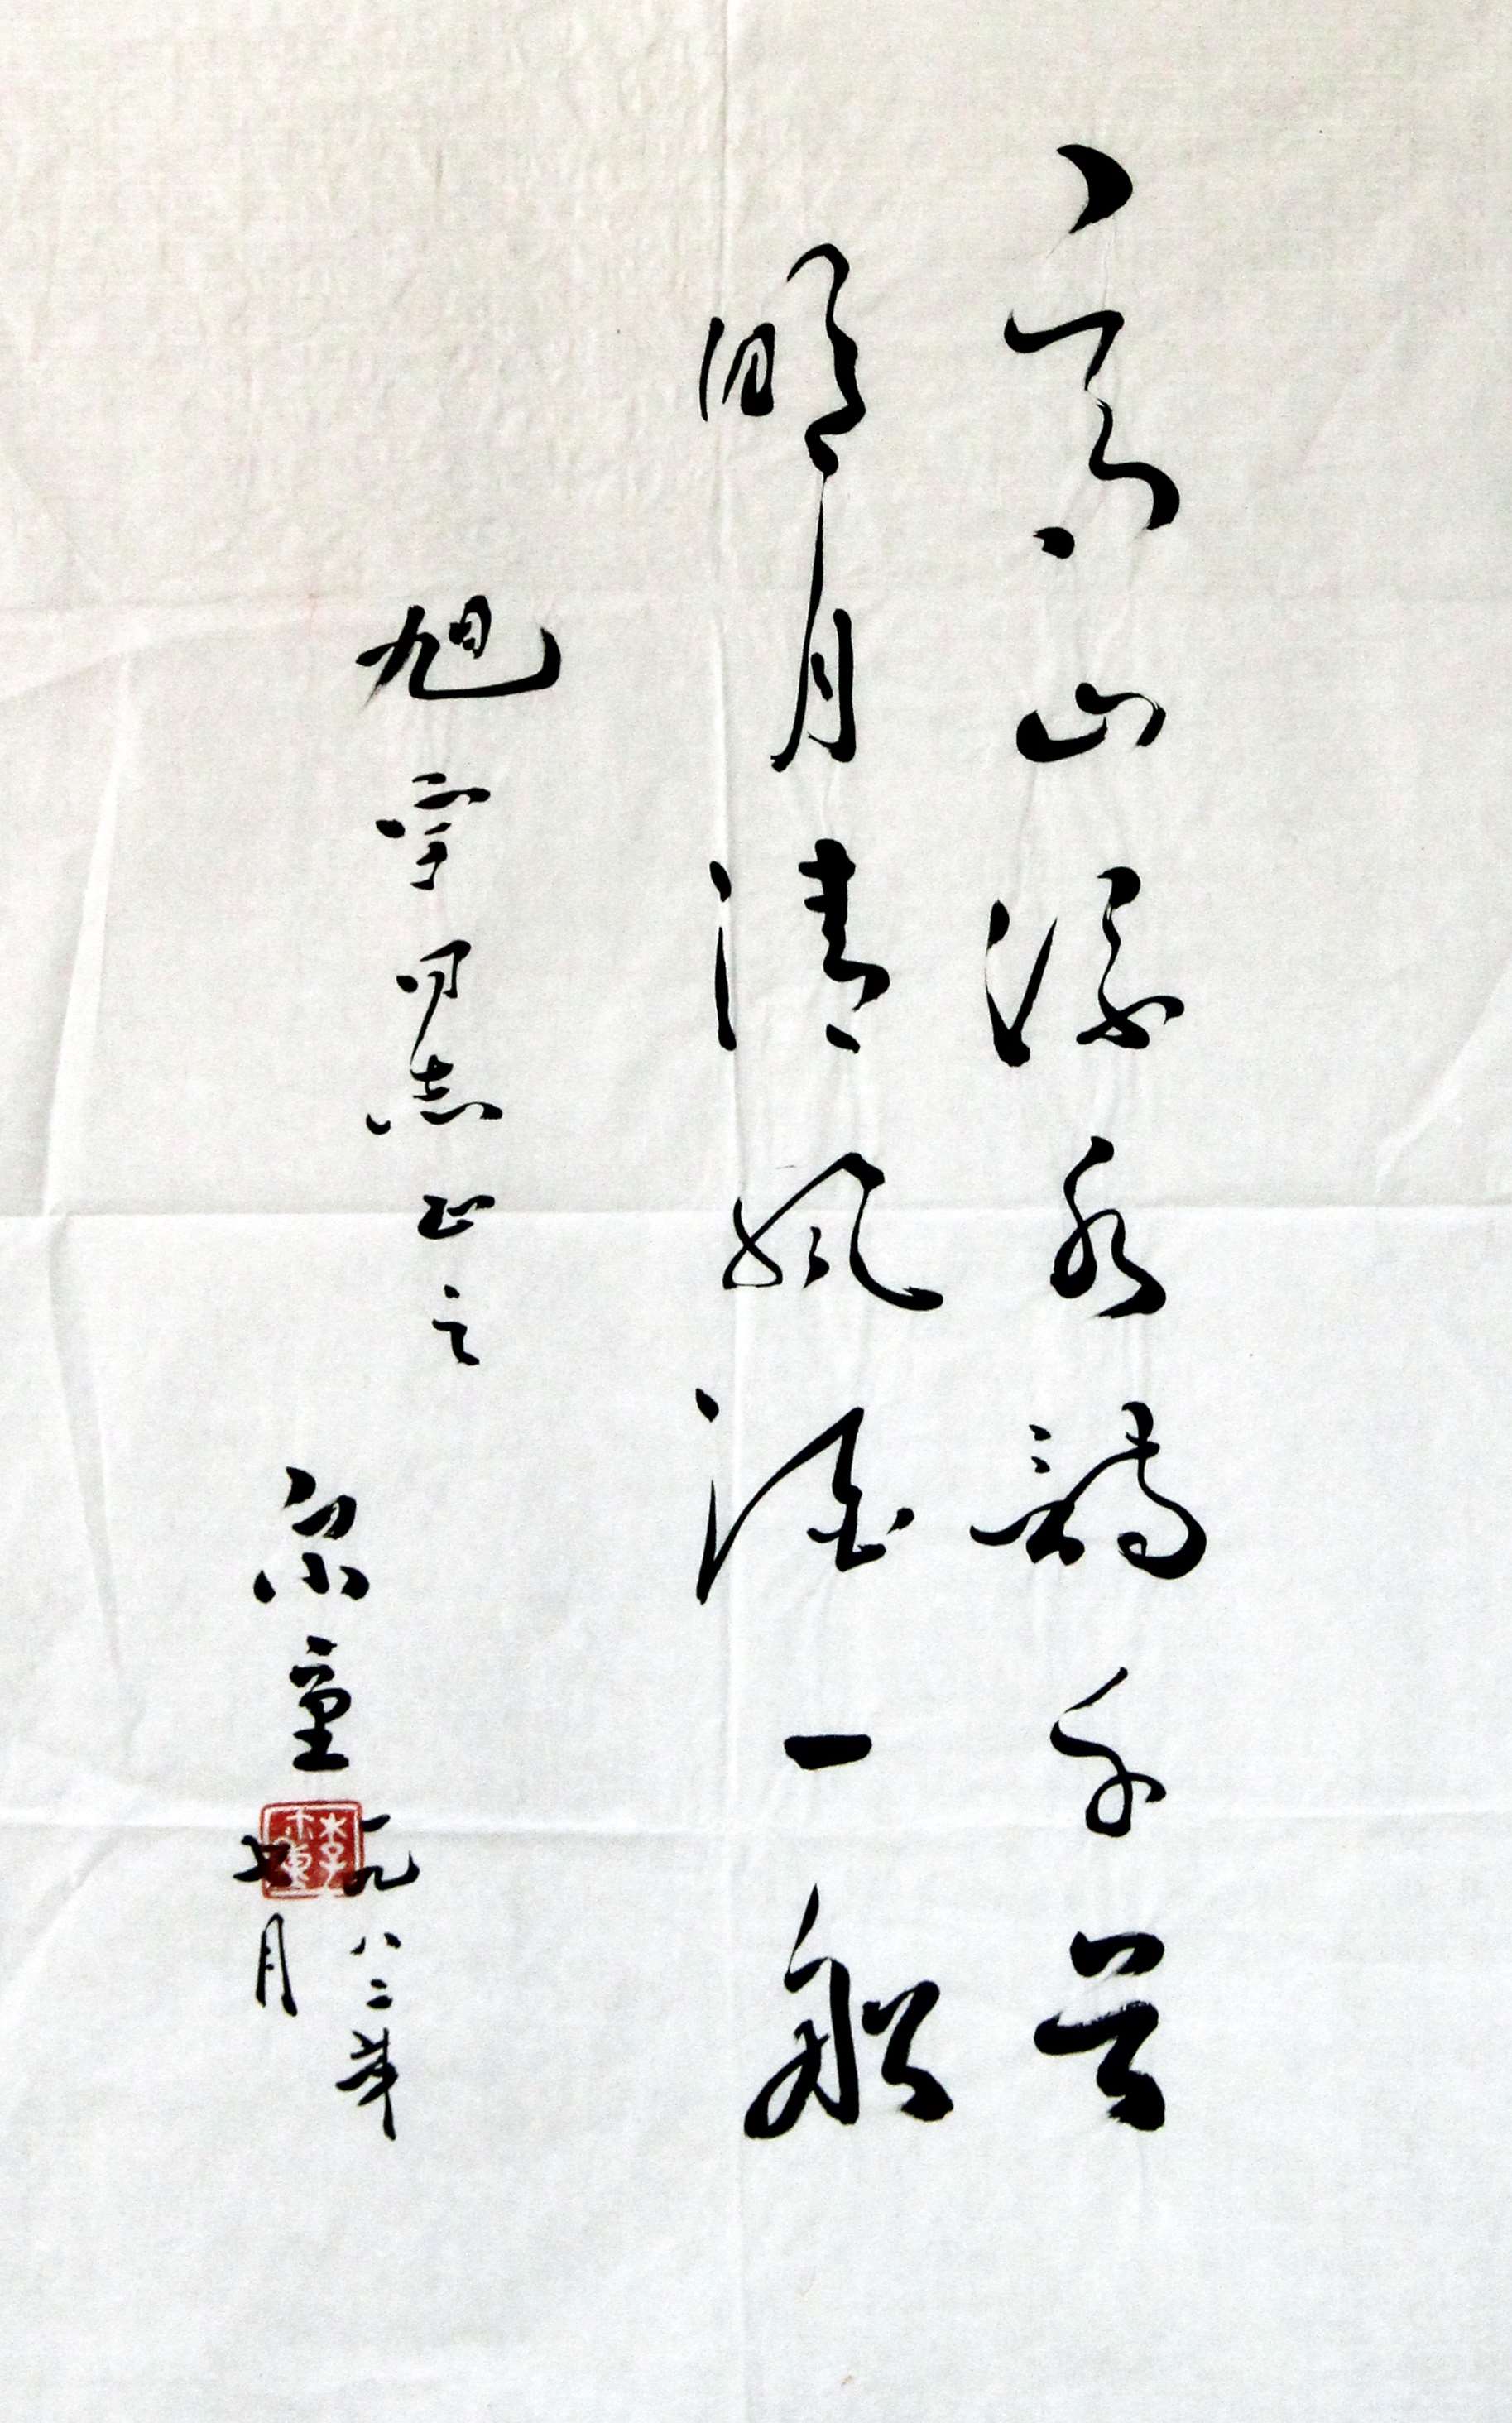 高山流水詩千首
明月清風酒一船
旭宇同志正之
一九八二年
七月